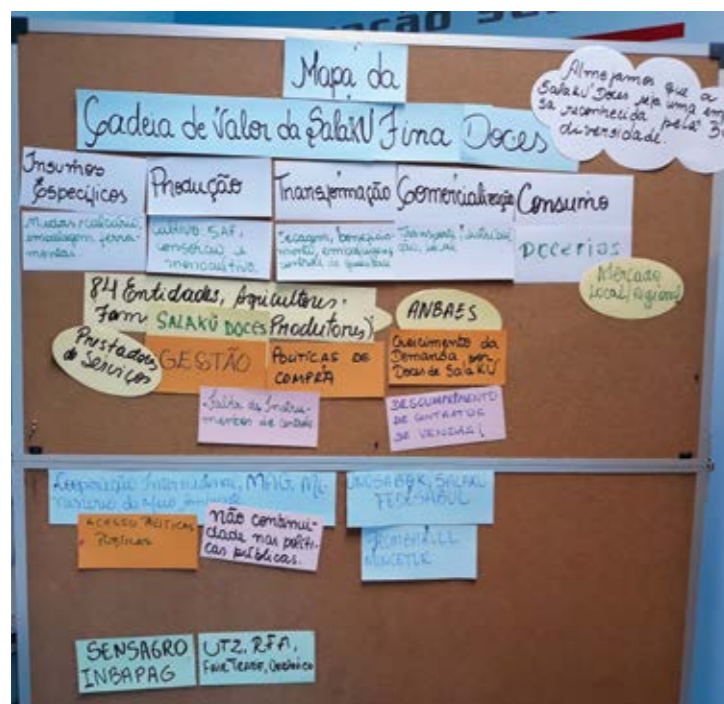 Mapa da
Cadeia de Valor da SalaKÚ Fina Doces
Almejamos que a
SalaKÚ Doces seja uma em
sa reconhecida pela
diversidade.
Insumos
Específicos
Produção
Transformação
Comercialização
Consumo
Mudas, calcário,
embalagem, ferra-
mentas.
Cultivo SAF,
consórcio e
monocultivo
Secagem, beneficia-
mento, embalagem,
controle de qualidade
Transporte,
DOCERIAS
Mercado
Local/Regional
84 Entidades, Agricultores.
Fam
SALAKÚ DOCES
Produtores)
ANBAES
Prestadores
de Serviços
GESTÃO
POLÍTICAS DE
COMPRA
Crescimento da
Demanda por
Doces de SalaKÚ
Falta de Instru-
mentos de controle
DESCUMPRIMENTO
DE CONTRATOS
DE VENDAS
Cooperação Internacional, MAG, Mi-
nistério do Meio Ambiente
UNOSABAK, SALAKÚ
FEDESABUL
ACESSO POLÍTICAS
PÚBLICAS
não continui-
dade nas políti-
cas públicas.
MINCETUR
SENSAGRO
INBAPAG
UTZ, RFA,
Fair Trade, Orgânico